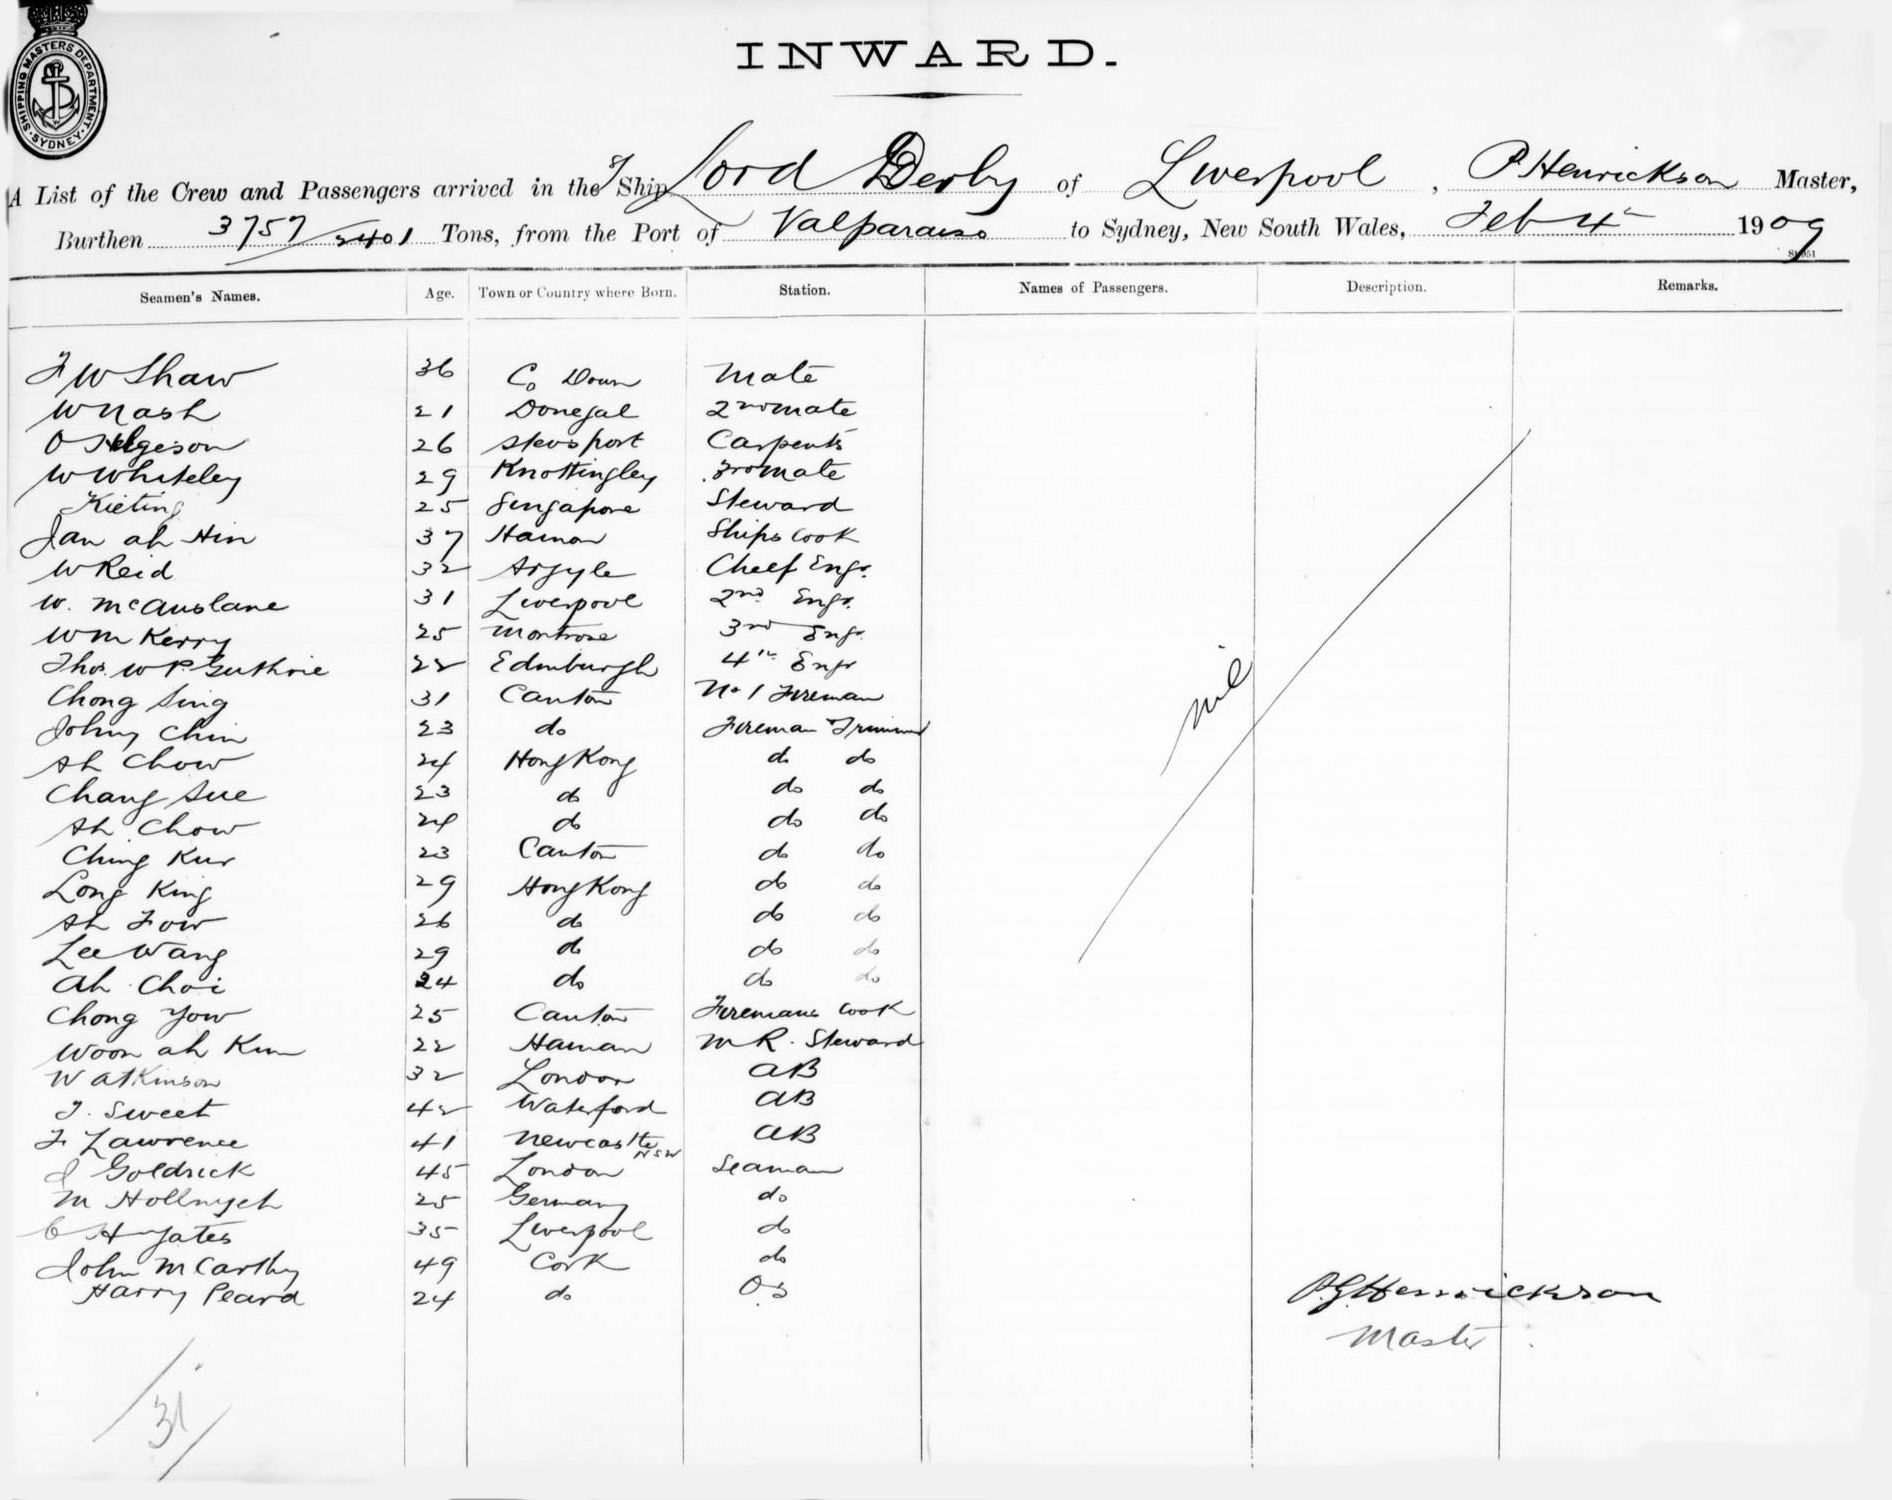 SHIPPING MASTERS DEPARTMENT. SYDNEY.
INWARD.
A List of the Crew and Passengers arrived in the S/ Ship Lord Derby of Liverpool, P Henrickson Master,
Burthen 3757/2401 Tons, from the Port of Valparaiso to Sydney, New South Wales, Feb 4th 1909
Seamen's Names. Age. Town or Country where Born. Station. Names of Passengers. Description. Remarks.
F W Shaw 36 Co Down Mate
W Nash 21 Donegal 2nd Mate
O Helgeson 26 Carpentr
W Whiteley 29 Knottingley 3rd Mate
Kieting 25 Singapore Steward
Jan ah Hin 37 Hainan Ships Cook
W Reid 32 Argyle Cheef Engr.
W. McAuslane 31 Liverpool 2nd Engr.
Wm Kerry 25 Montrose 3rd Engr.
Thos. W P. Guthrie 22 Edinburgh 4th Engr
Chong Sing 31 Canton No 1 Fireman
Johny Chin 23 do Fireman Trimmer
Ah Chow 24 Hong Kong do do
nil
Chang Sue 23 do do do
Ah Chow 24 do do do
Ching Kur 23 Canton do do
Long King 29 Hong Kong do do
Ah Fow 26 do do do
Lee Wang 29 do do do
Ah Choi 24 do do do
Chong Yow 25 Canton Firemans Cook
Woon ah Kum 22 Hainan M R. Steward
W Atkinson 32 London AB
J. Sweet 42 Waterford AB
F Lawrence 41 Newcastle NSW AB
J Goldrick 45 London Seaman
M 25 Germany do
C H Yates 35 Liverpool do
John McCarthy 49 Cork do
Harry Peard 24 do OS
P.G. Henrickson
Master
31